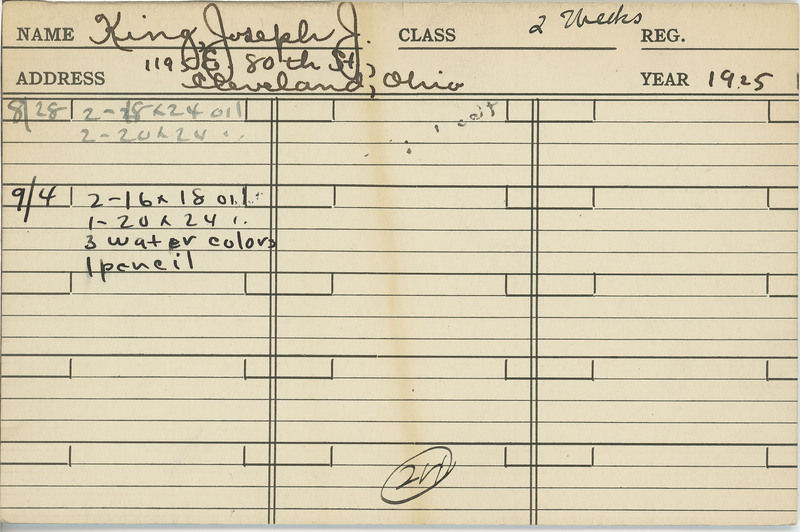 NAME King, Joseph J. CLASS 2 Weeks REG.
1195 E. 80th St,
ADDRESS Cleveland, Ohio YEAR 1925
8/28 2-18x24 oil
2-20x24 "
9/4 2-16x18 oil
1-20x24 "
3 water colors
1 pencil